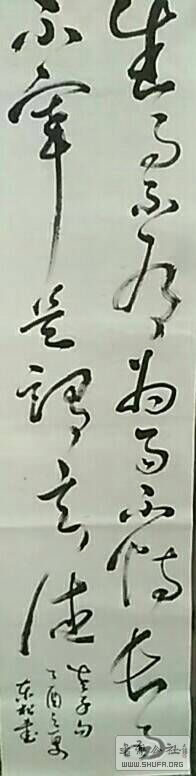 生而不有为而不恃长而
不宰是謂玄德
老子句
乙酉之夏
东松书
書法公社
WWW.SHUFA.ORG